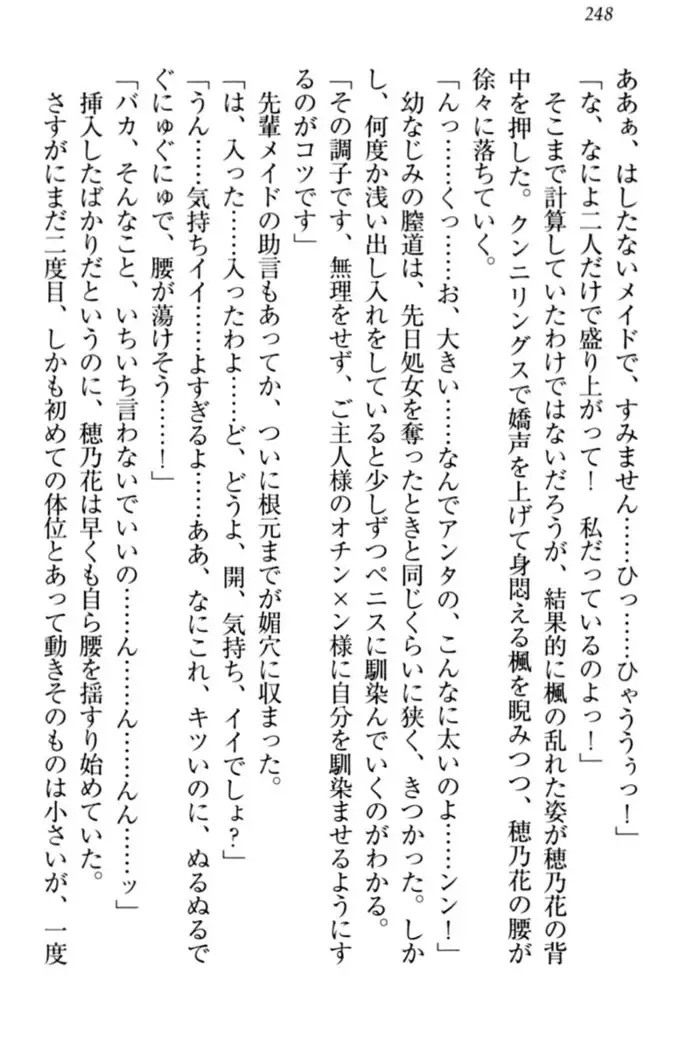 248
ああぁ、はしたないメイドで、すみません……ひっ……ひゃううぅっ！」
「な、なによ二人だけで盛り上がって！　私だっているのよっ！」
そこまで計算していたわけではないだろうが、結果的に楓の乱れた姿が穂乃花の背
中を押した。クンニリングスで嬌声を上げて身悶える楓を睨みつつ、穂乃花の腰が
徐々に落ちていく。
「んっ……くっ……お、大きい……なんでアンタの、こんなに太いのよ……ンン！」
幼なじみの膣道は、先日処女を奪ったときと同じくらいに狭く、きつかった。しか
し、何度か浅い出し入れをしていると少しずつペニスに馴染んでいくのがわかる。
「その調子です、無理をせず、ご主人様のオチン×ン様に自分を馴染ませるようにす
るのがコツです」
先輩メイドの助言もあってか、ついに根元までが媚穴に収まった。
「は、入った……入ったわよ……ど、どうよ、開、気持ち、イイでしょ？」
「うん……気持ちイイ……よすぎるよ……ああ、なにこれ、キツいのに、ぬるぬるで
ぐにゅぐにゅで、腰が蕩けそう……！」
「バカ、そんなこと、いちいち言わないでいいの……ん……ん……んん……ッ」
挿入したばかりだというのに、穂乃花は早くも自ら腰を揺すり始めていた。
さすがにまだ二度目、しかも初めての体位とあって動きそのものは小さいが、一度